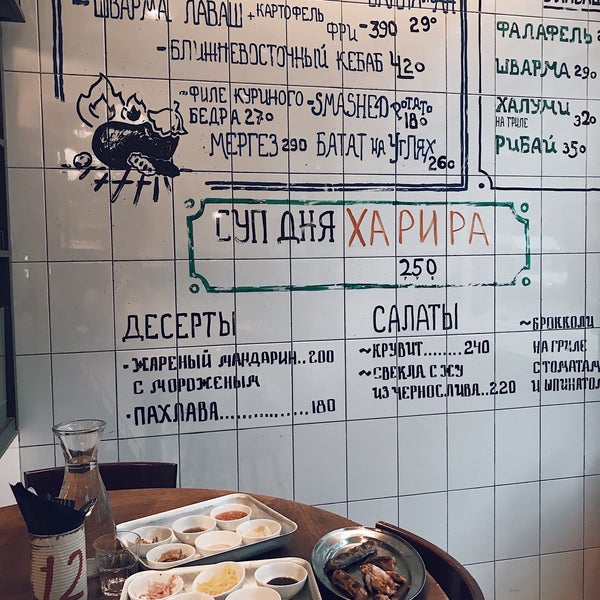 -ШВАРМА ЛАВАШ + КАРТОФЕЛЬ ФРИ -390 290
-БЛИЖНЕВОСТОЧНЫЙ КЕБАБ 420
~ФИЛЕ КУРИНОГО
БЕДРА 270
-SMASHED POTATO
180
МЕРГЕЗ 290
БАТАТ НА УГЛЯХ
260
ФАЛАФЕЛЬ
ШВАРМА 290
ХАЛУМИ
НА ГРИЛЕ 320
РИБАЙ 350
СУП ДНЯ ХАРИРА
250
ДЕСЕРТЫ
·ЖАРЕНЫЙ МАНДАРИН..200
С МОРОЖЕНЫМ
·ПАХЛАВА..............180
САЛАТЫ
~КРУВИТ........240
~СВЕКЛА С ЖУ
ИЗ ЧЕРНОСЛИВА..220
~БРОККОЛИ
НА ГРИЛЕ
С ТОМАТАМ
И ШПИНАТО
12